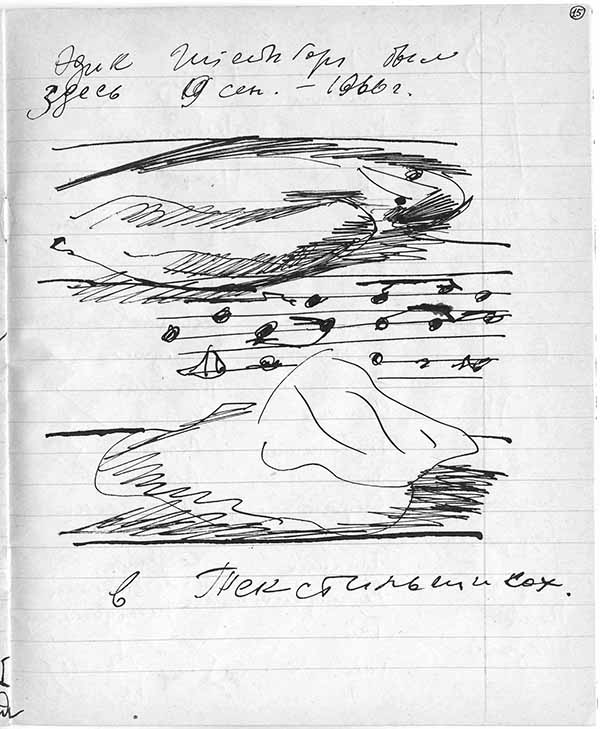 15
Эдик Штейнберг был
здесь 19 сен. – 1966 г.
в Текстильщиках.